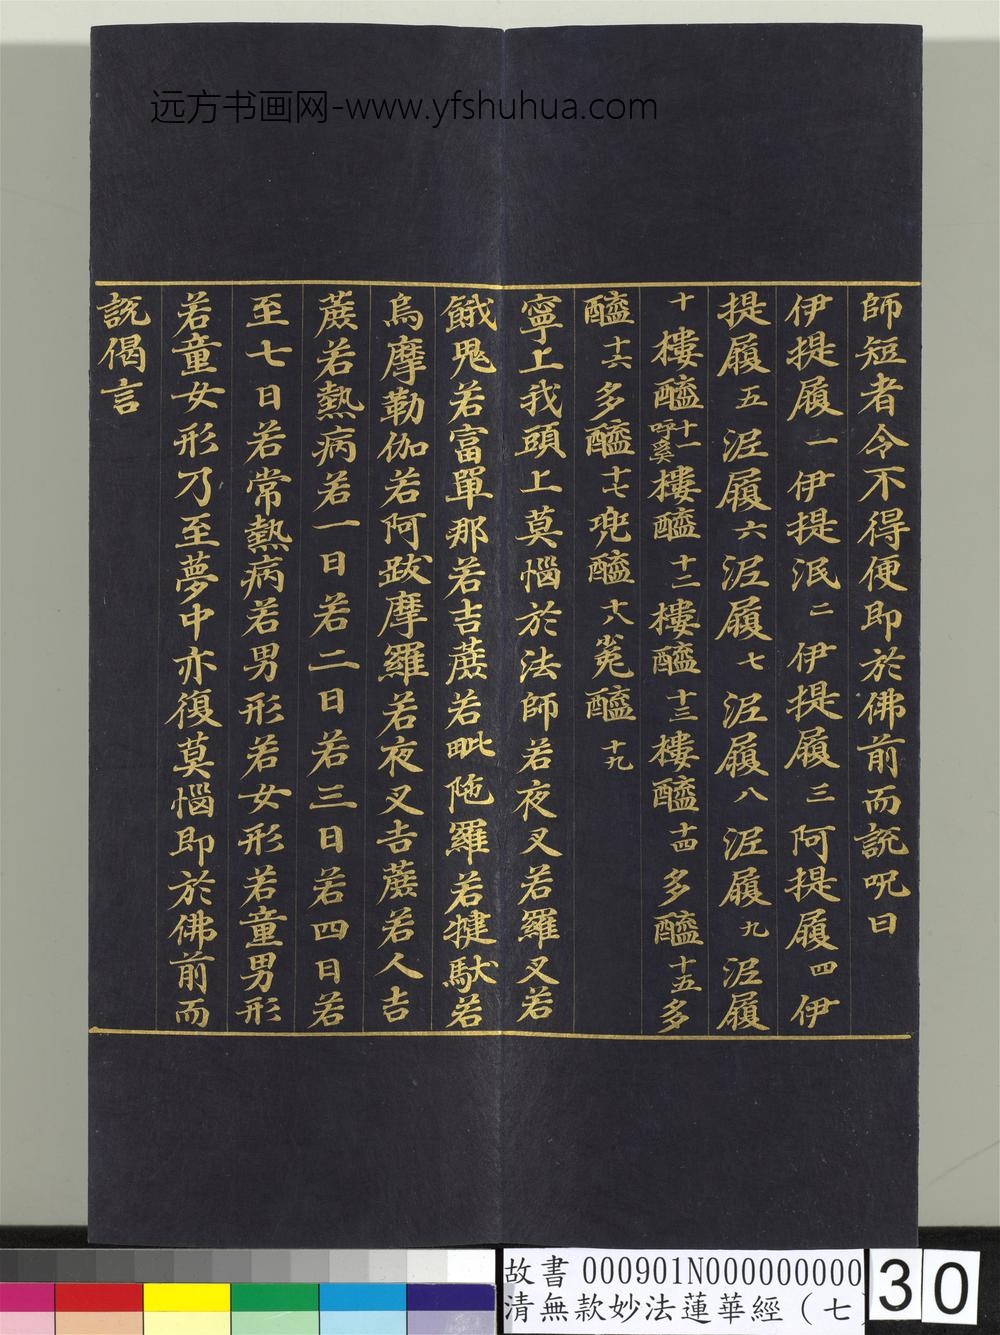 远方书画网-www.yfshuhua.com
師短者令不得便即於佛前而説呪曰
伊提履一伊提泯二伊提履三阿提履四伊
提履五泥履六泥履七泥履八泥履九泥履
十樓醯十一呼奚樓醯十二樓醯十三樓醯十四多醯十五多
醯十六多醯十七兜醯十八㝹醯十九
寧上我頭上莫惱於法師若夜叉若羅叉若
餓鬼若富單那若吉蔗若毗陁羅若犍馱若
烏摩勒伽若阿跋摩羅若夜叉吉蔗若人吉
蔗若熱病若一日若二日若三日若四日若
至七日若常熱病若男形若女形若童男形
若童女形乃至夢中亦復莫惱即於佛前而
説偈言
故書 000901N000000000
清無款妙法蓮華經（七）
30